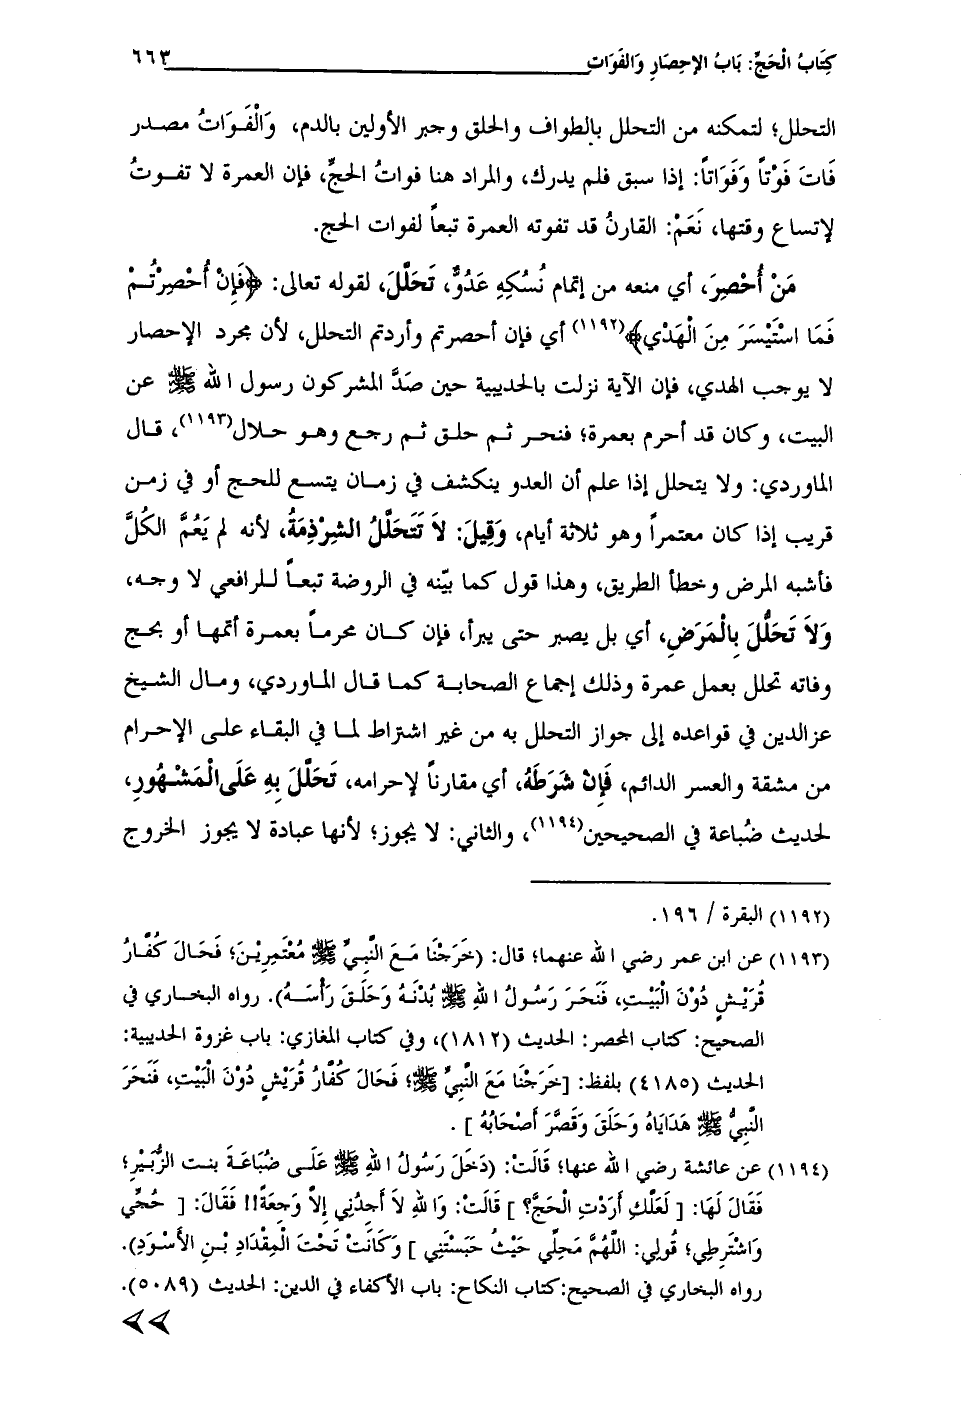 كِتَابُ الْحَجِّ: بَابُ الإِحصَارِ وَالفَوَاتِ ٦٦٣
التحلل؛ لتمكنه من التحلل بالطواف والحلق وجبر الأولين بالدم، وَالْفَوَاتُ مصدر
فَاتَ فَوْتاً وَفَوَاتاً: إذا سبق فلم يدرك، والمراد هنا فواتُ الحجِّ، فإن العمرة لا تفوتُ
لإتساع وقتها، نَعَمْ: القارنُ قد تفوته العمرة تبعاً لفوات الحج.
مَنْ أُحْصِرَ، أي منعه من إتمام نُسُكِهِ عَدُوٌّ، تَحَلَّلَ، لقوله تعالى: ﴿فَإِنْ أُحْصِرْتُمْ
فَمَا اسْتَيْسَرَ مِنَ الْهَدْيِ﴾(١١٩٢) أي فإن أحصرتم وأردتم التحلل، لأن مجرد الإحصار
لا يوجب الهدي، فإن الآية نزلت بالحديبية حين صَدَّ المشركون رسول الله ﷺ عن
البيت، وكان قد أحرم بعمرة؛ فنحر ثم حلق ثم رجع وهو حلال(١١٩٣)، قال
الماوردي: ولا يتحلل إذا علم أن العدو ينكشف في زمان يتسع للحج أو في زمن
قريب إذا كان معتمراً وهو ثلاثة أيام، وَقِيلَ: لاَ تَتَحَلَّلُ الشِرْذِمَةُ، لأنه لم يَعُمَّ الكُلَّ
فأشبه المرض وخطأ الطريق، وهذا قول كما بيّنه في الروضة تبعاً للرافعي لا وجه،
وَلاَ تَحَلُّلَ بِالْمَرَضِ، أي بل يصبر حتى يبرأ، فإن كان محرماً بعمرة أتمها أو بحج
وفاته تحلل بعمل عمرة وذلك إجماع الصحابة كما قال الماوردي، ومال الشيخ
عزالدين في قواعده إلى جواز التحلل به من غير اشتراط لما في البقاء على الإحرام
من مشقة والعسر الدائم، فَإِنْ شَرَطَهُ، أي مقارناً لإحرامه، تَحَلَّلَ بِهِ عَلَى الْمَشْهُورِ،
لحديث ضُباعة في الصحيحين(١١٩٤)، والثاني: لا يجوز؛ لأنها عبادة لا يجوز الخروج
(١١٩٢) البقرة / ١٩٦.
(١١٩٣) عن ابن عمر رضي الله عنهما؛ قال: (خَرَجْنَا مَعَ النَّبِيِّ ﷺ مُعْتَمِرِيْنَ؛ فَحَالَ كُفَّارُ
قُرَيْشٍ دُوْنَ الْبَيْتِ، فَنَحَرَ رَسُولُ اللهِ ﷺ بُدْنَهُ وَحَلَقَ رَأْسَهُ). رواه البخاري في
الصحيح: كتاب المحصر: الحديث (١٨١٢)، وفي كتاب المغازي: باب غزوة الحديبية:
الحديث (٤١٨٥) بلفظ: [خَرَجْنَا مَعَ النَّبِيِّ ﷺ؛ فَحَالَ كُفَّارُ قُرَيْشٍ دُوْنَ الْبَيْتِ، فَنَحَرَ
النَّبِيُّ ﷺ هَدَايَاهُ وَحَلَقَ وَقَصَّرَ أَصْحَابُهُ ] .
(١١٩٤) عن عائشة رضي الله عنها؛ قَالَتْ: (دَخَلَ رَسُولُ اللهِ ﷺ عَلَى ضُبَاعَةَ بنت الزُّبَيْرِ؛
فَقَالَ لَهَا: [ لَعَلَّكِ أَرَدْتِ الْحَجَّ؟ ] قَالَتْ: وَاللهِ لاَ أَجِدُنِي إِلاَّ وَجِعَةً!! فَقَالَ: [ حُجِّي
وَاشْتَرِطِي؛ قُولِي: اللَّهُمَّ مَحِلِّي حَيْثُ حَبَسْتَنِي ] وَكَانَتْ تَحْتَ الْمِقْدَادِ بْنِ الأَسْوَدِ).
رواه البخاري في الصحيح:كتاب النكاح: باب الأكفاء في الدين: الحديث (٥٠٨٩).